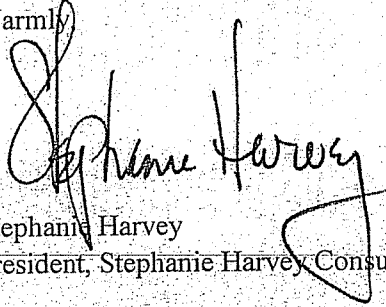 armly,
Stephanie Harvey
tephanie Harvey
resident, Stephanie Harvey Consu